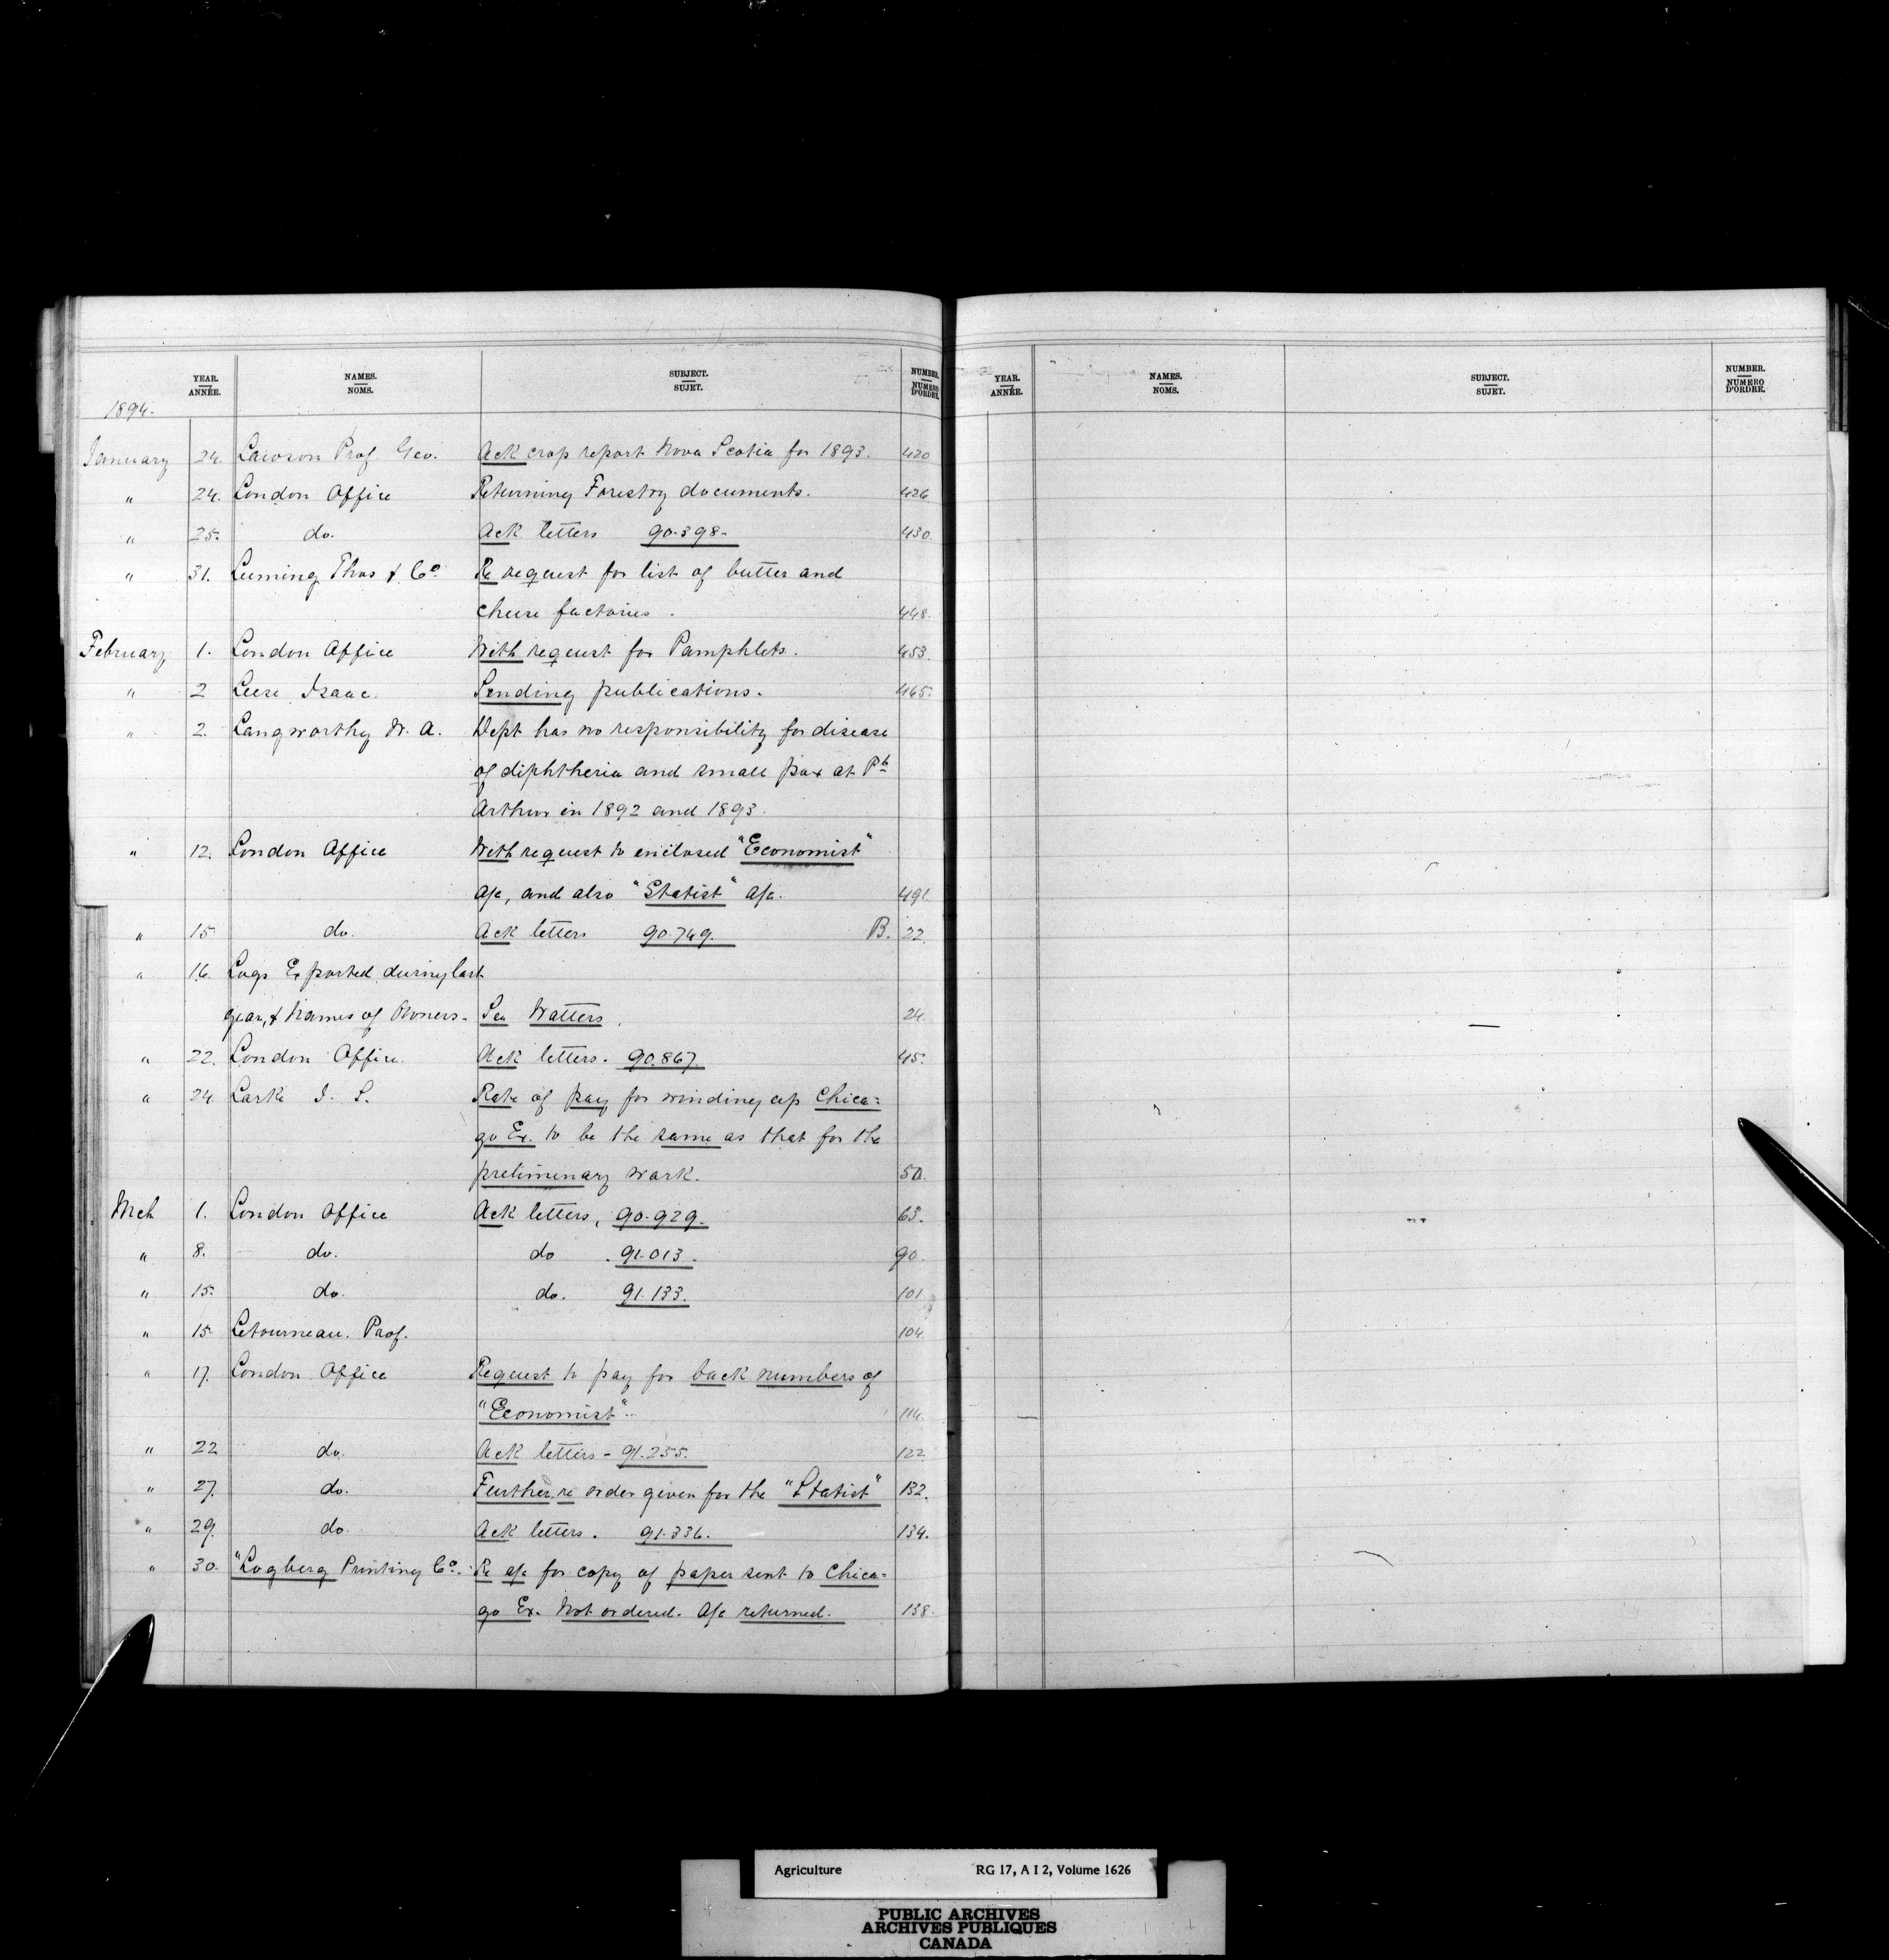 YEAR. ANNÉE. NAMES. NOMS. SUBJECT. SUJET. NUMBER. NUMERO D'ORDRE.
1894.
January 24. Lawson Prof Geo. Ack crop report Nova Scotia for 1893. 420
" 24. London Office Returning Forestry documents. 426
" 25. do. Ack letters 90.398. 430.
" 31. Leeming Thos & Co. Re request for list of butter and
cheese factories. 448.
February 1. London Office With request for Pamphlets. 453.
" 2 Leese Isaac. Sending publications. 465.
" 2. Langworthy W. A. Dept has no responsibility for disease
of diphtheria and small pox at Pt
Arthur in 1892 and 1893.
" 12. London Office With request to enclosed "Economist"
a/c, and also "Statist" a/c. 491
" 15 do. Ack letters 90.749. B. 22.
" 16. Logs Exported during last
year, & Names of Owners. See Watters. 24.
" 22. London Office. Ack letters. 90.867. 45.
" 24 Larke J. S. Rate of pay for winding up Chica=
go Ex. to be the same as that for the
preliminary work. 50.
Mch 1. London Office Ack letters, 90.929. 63.
" 8. do. do. 91.013. 90.
" 15. do. do. 91.133. 101.
" 15. Letourneau. Prof. 104.
" 17. London Office Request to pay for back numbers of
"Economist". 114.
" 22 do. Ack letters - 91.255. 122
" 27. do. Further re order given for the "Statist" 132.
" 29. do. Ack letters. 91.336. 134.
" 30. "Logberg Printing Co. Re a/c for copy of paper sent to Chica=
go Ex. Not ordered. A/c returned. 138.
YEAR. ANNÉE. NAMES. NOMS. SUBJECT. SUJET. NUMBER. NUMERO D'ORDRE.
Agriculture RG 17, A I 2, Volume 1626
PUBLIC ARCHIVES
ARCHIVES PUBLIQUES
CANADA